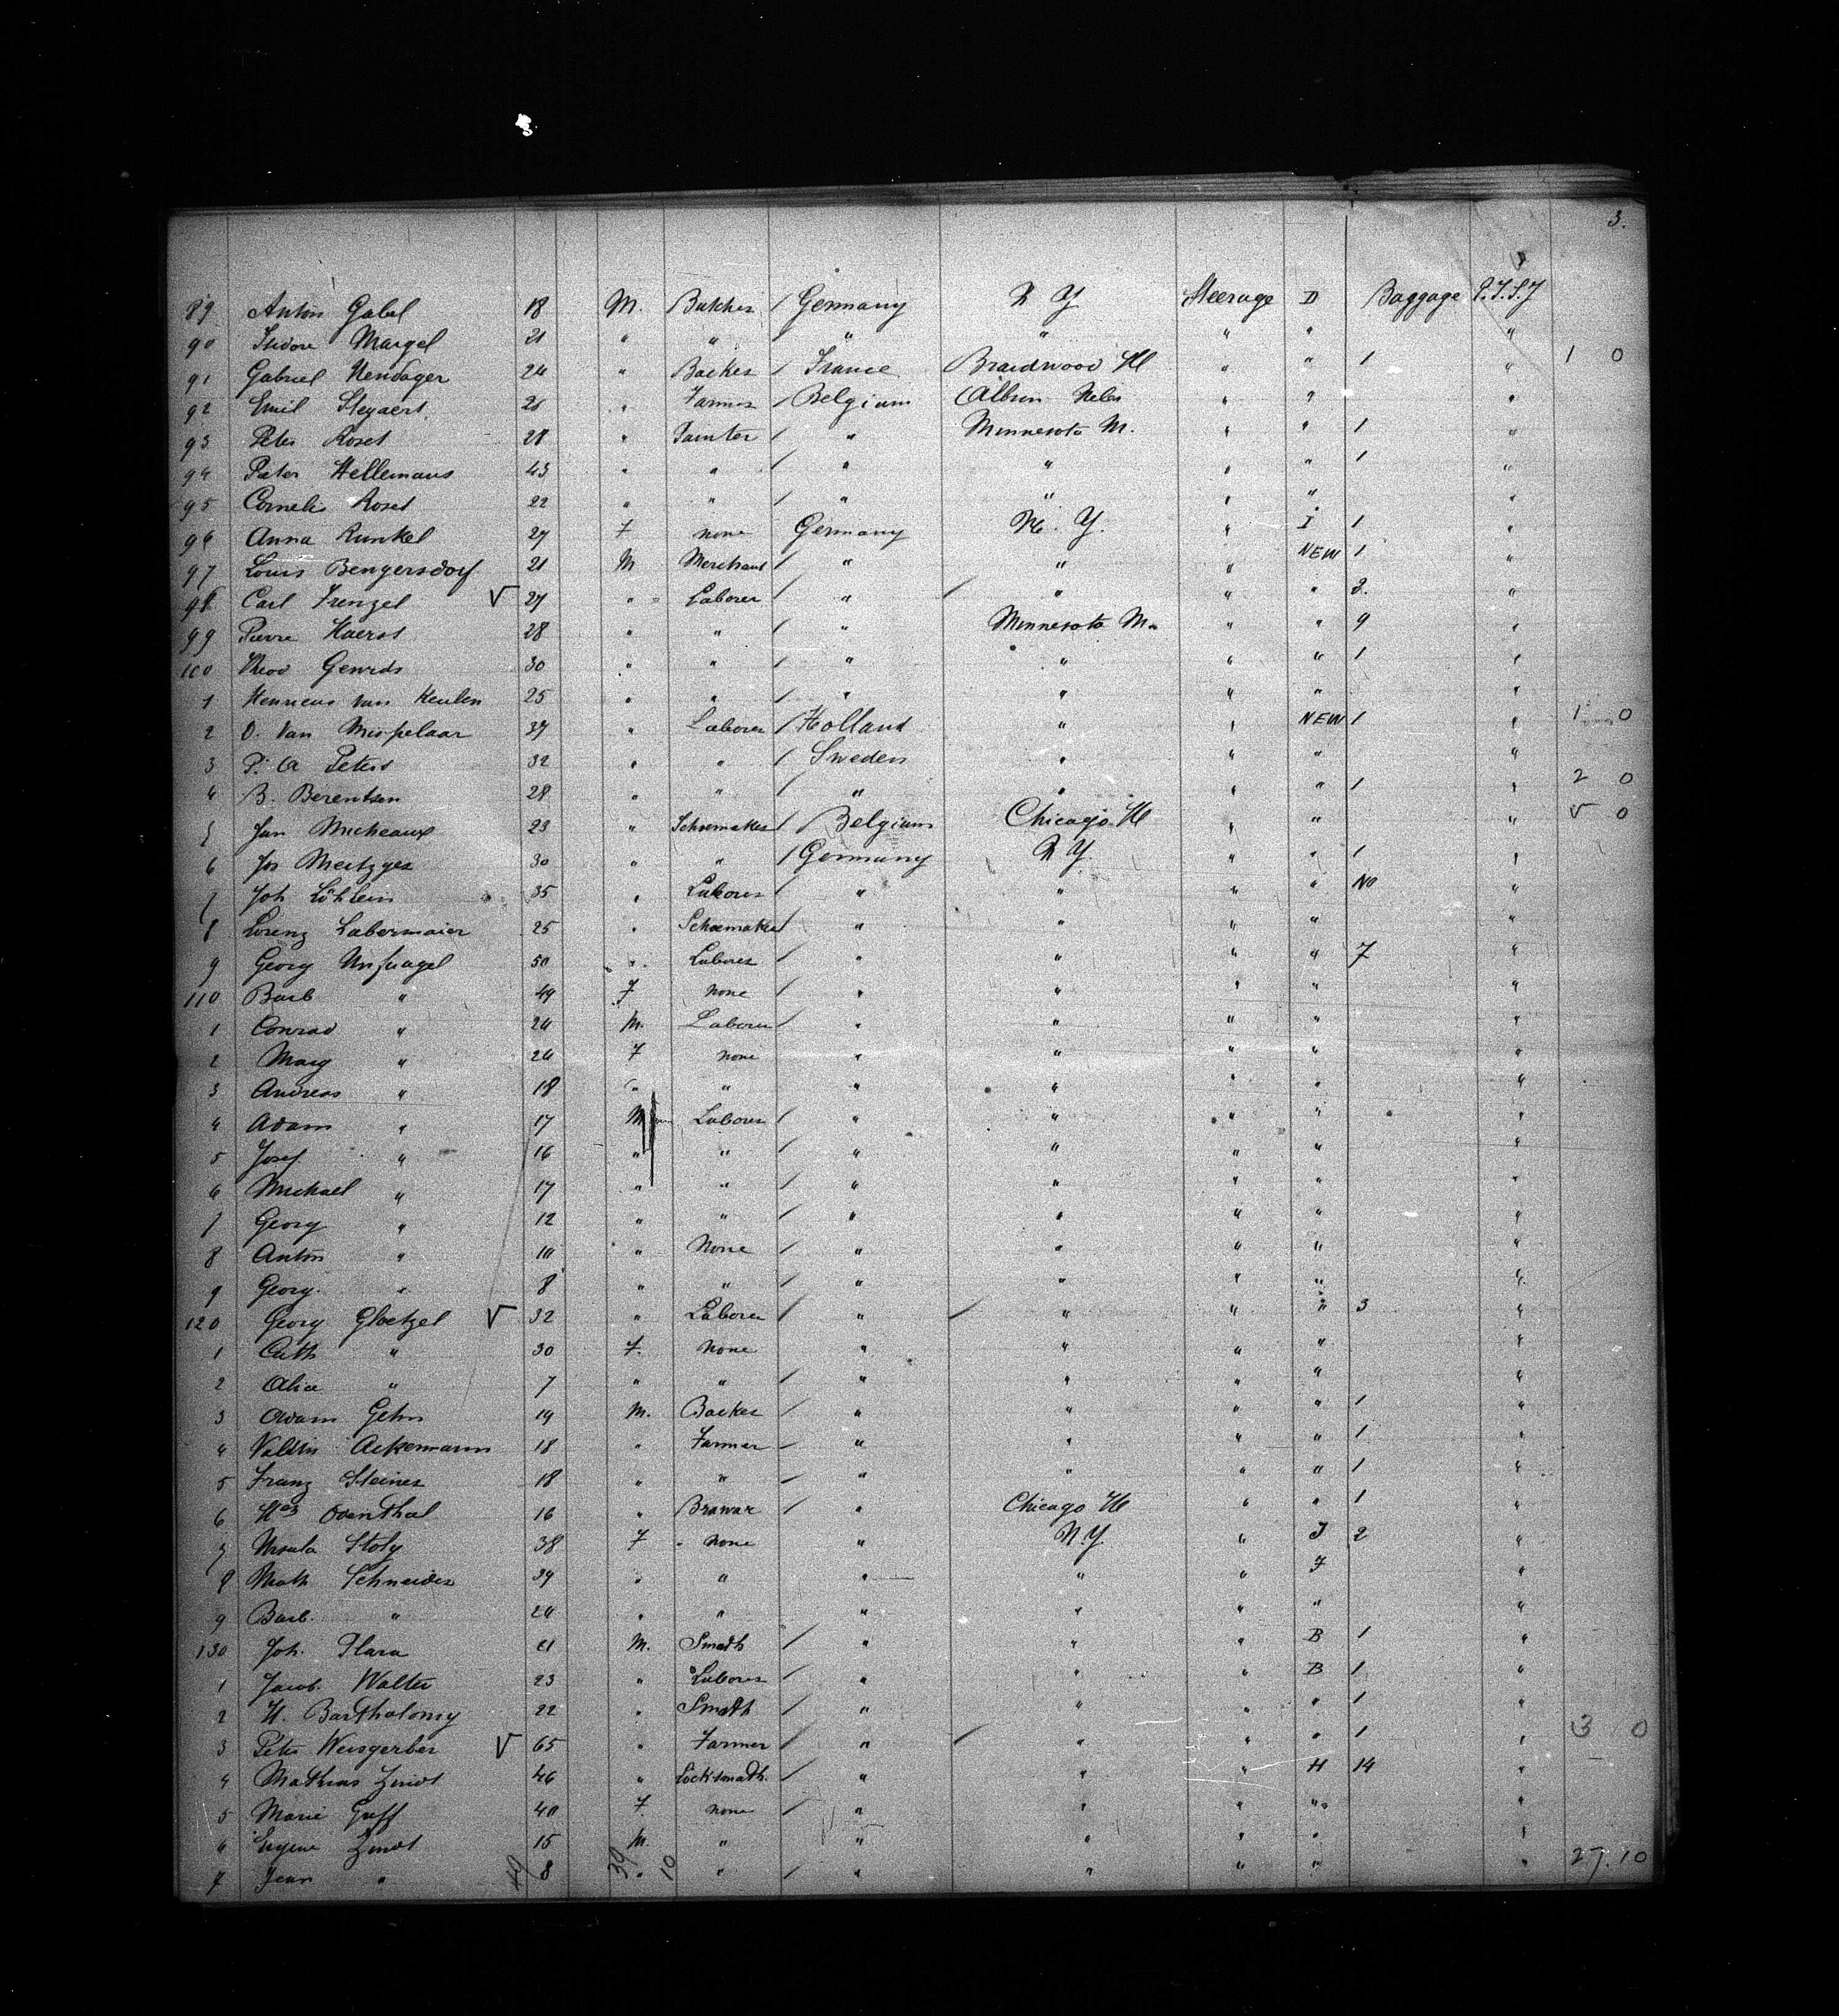 3.
89 Anton Gabel 18 M. Butcher / Germany N Y Steerage D Baggage P.T.S.J
90 Isidore Margel 21 " " / " " " " "
91 Gabriel 24 " Backer / France Braidwood Ill " " 1 " 1 0
92 Emil Steyaert 21 " Farmer / Belgium " " "
93 Peter Roset 28 " / " Minnesota M. " " 1 "
94 Peter Hellemans 43 " " / " " " " 1 "
95 Cornelis Roset 22 " " / " " " " "
96 Anna Runkel 27 F none Germany N. Y. " I 1 "
97 Louis Bengersdorf 21 M Merchant / " " " NEW 1 "
98 Carl Frenzel V 27 " Laborer / " / " " " 2. "
99 Pierre 28 " " / " Minnesota M. " " 9 "
100 Theod 30 " " / " " " " 1 "
1 Henricus van Keulen 25 " " / " " " " "
2 D. Van Mispelaar 37 " Laborer / Holland " " NEW 1 " 1 0
3 P. A Peters 32 " " / Sweden " " " "
4 B. Berentsen 28 " " / " " " " 1 " 2 0
5 Jan Micheaux 23 " Schoemaker / Belgium Chicago Ill " " " 5 0
6 Jos 30 " " / Germany N Y. " " 1 "
7 Joh Löhlein 35 " Laborer / " " " " No "
8 Lorenz Labermaier 25 " Schoemaker / " " " " "
9 Georg 50 " Laborer / " " " " 7 "
110 Barb " 49 F none / " " " " "
1 Conrad " 24 M. Laborer / " " " " "
2 Marg " 24 F none " " " " "
3 Andreas " 18 " " " " " " "
4 Adam " 17 M Laborer / " " " " "
5 Josef " 16 " " / " " " " "
6 Michael " 17 " " / " " " " "
7 Georg " 12 " " / " " " " "
8 Anton " 10 " None / " " " " "
9 Georg. " 8 " " / " " " " "
120 Georg Gloetzel V 32 " Laborer / " / " " " 3 "
1 Cath " 30 F. None " " " " "
2 Alice " 7 " " / " " " " "
3 Adam Gehn 19 M. Backer / " " " " 1 "
4 Valtin Ackermann 18 " Farmer / " " " " 1 "
5 Franz Steiner 18 " " / " " " " 1 "
6 Odenthal 16 " Brawar / " Chicago Ill " " 1 "
7 Ursula 38 F none " N.Y. " I 2 "
8 Math Schneider 39 " " " " " F "
9 Barb. " 24 " " " " " " "
130 Joh. Flara 21 M. Smath / " " " B 1 "
1 Jacob Walter 23 " Laborer / " " " B 1 "
2 H. Bartholomy 22 " Smath / " " " " 1 "
3 Peter Weisgerber V 65 " Farmer / " / " " " 1 " 3 0
4 Mathias Zindt 46 " Locksmath. / " " " H 14 "
5 Marie 40 F. none / " " " " "
6 Eugene Zindt 15 M. " " " " " "
7 Jean " 49 8 39 " 10 " / " " " " " 27.10